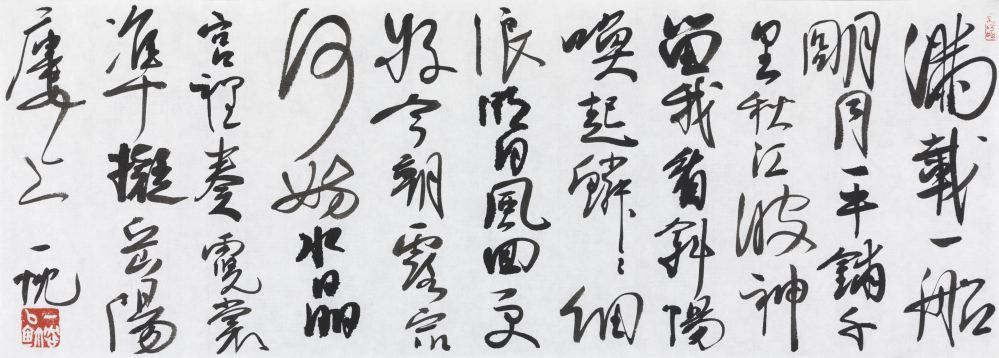 滿載一船
明月平鋪千
里秋江波神
留我看斜陽
喚起鱗〻細
浪明日風回更
好今朝露宿
何妨水晶
宮裡奏霓裳
準擬岳陽
樓上 一忱